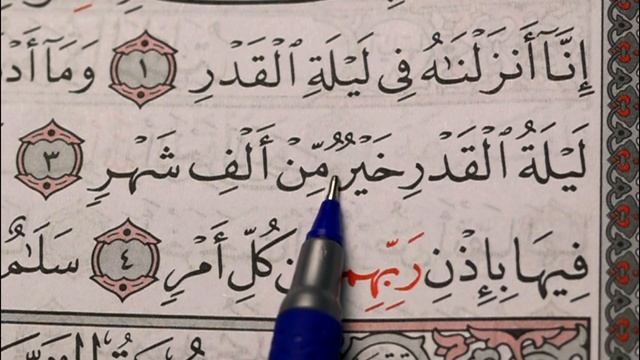 إِنَّآ أَنزَلْنَـٰهُ فِى لَيْلَةِ ٱلْقَدْرِ ١ وَمَآ أَدْ
لَيْلَةُ ٱلْقَدْرِ خَيْرٌ مِّنْ أَلْفِ شَهْرٍ ٣
فِيهَا بِإِذْنِ رَبِّهِم ن كُلِّ أَمْرٍ ٤ سَلَـٰمٌ